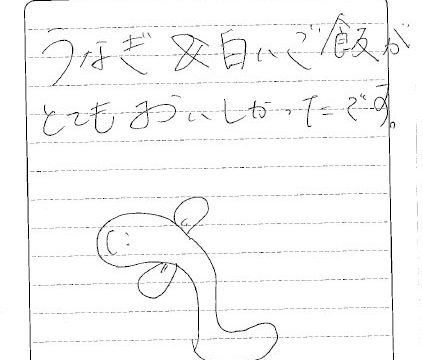 うなぎ&白いご飯が
とてもおいしかったです。